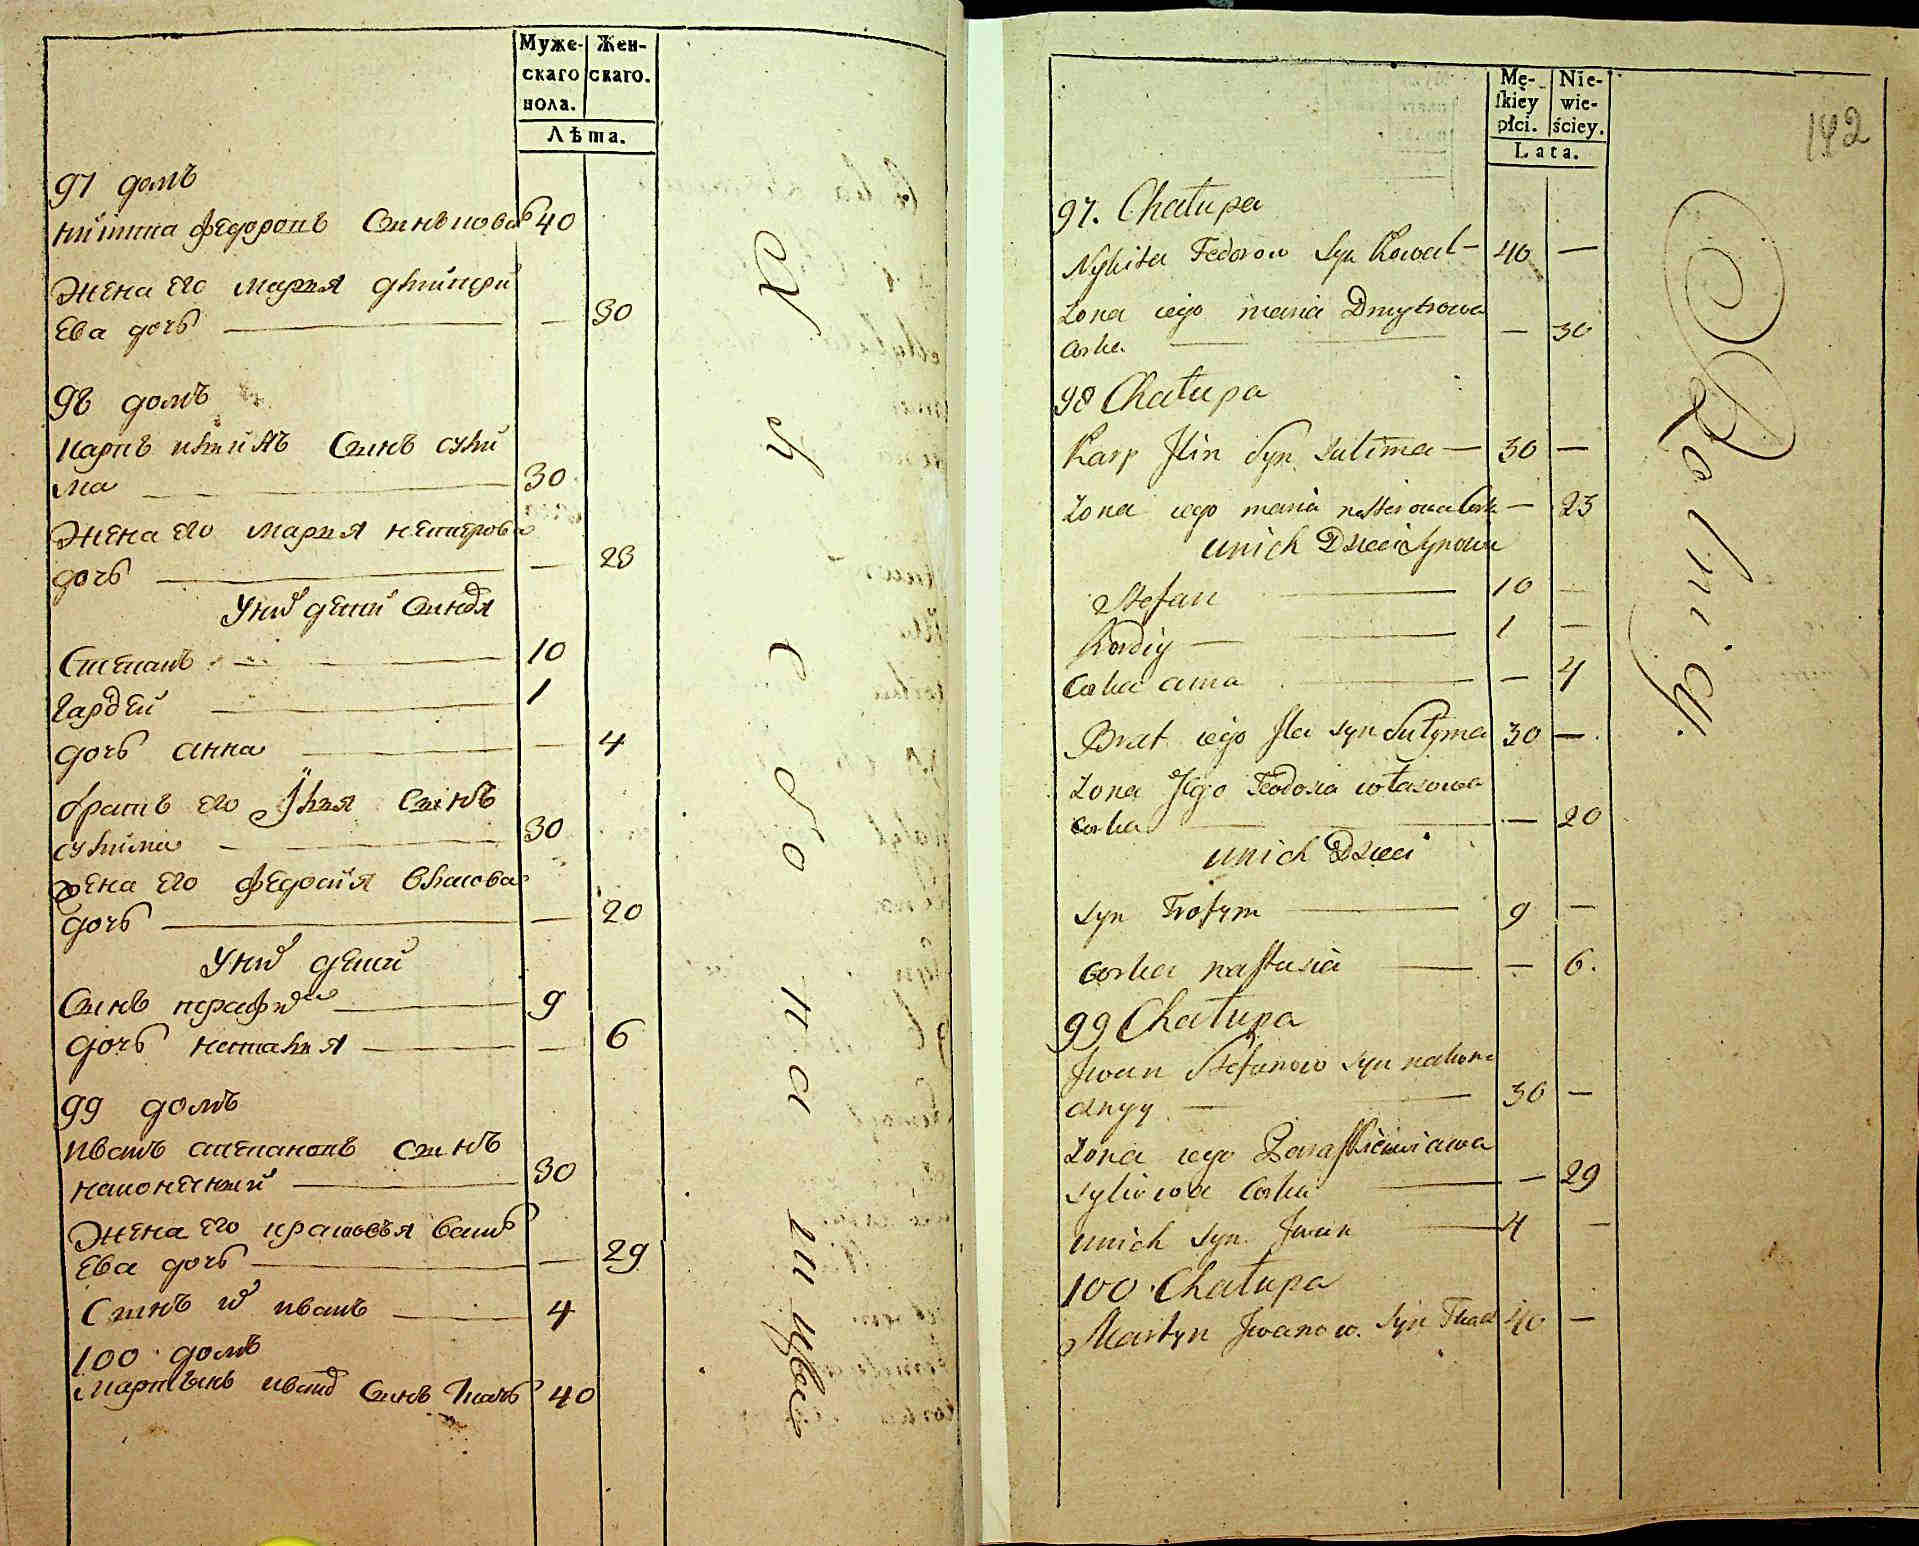 Муже-
скаго
пола.
Жен-
скаго.
Лѣта.
97 домъ
никита федоровъ синъ коваль 40
жена его мария дмитри
ева дочь — — 30
98 домъ
карпъ илиинъ синъ сули
ма — 30
жена его мария нестерова
дочь — — 23
У них дети синовя
Степанъ — 10
Гардей — 1
дочь анна — — 4
братъ его Илия синъ
сулима — 30
жена его федосия власова
дочь — — 20
У них дети
Синъ трафим — 9
дочь насталия — — 6
99 домъ
иванъ степановъ синъ
наконечний — 30
жена его прасковья васил
ева дочь — — 29
Синъ их иванъ — 4
100 домъ
мартынъ иванов синъ ткачь 40
Хлебопашцы
Mę-
skiey
płci.
Nie-
wie-
ściey.
Lata.
142
97. Chałupa
Nykita Fedorow syn Kowal — 40 —
żona iego maria Dmytrowa
Corka — — 30
98 Chałupa
Karp Ilin Syn Sulima — 30 —
żona iego maria nesterowa Cork — 23
unich Dzieci Synowie
Stefan — 10 —
Hordiy — 1 —
Corka anna — — 4
Brat iego Ila syn Sulyma 30 —
żona Jego Teodosia własowa
Corka — — 20
unich Dzieci
syn Trofym — 9 —
corka nastasia — — 6.
99 Chałupa
Jwan Stefanow syn nakone
cznyy — 30 —
żona iego Paraskiewia wa
sylowa Corka — — 29
unich syn Jwan — 4 —
100 Chałupa
Martyn Jwanow. Syn Tkacz 40 —
Rolnicy.